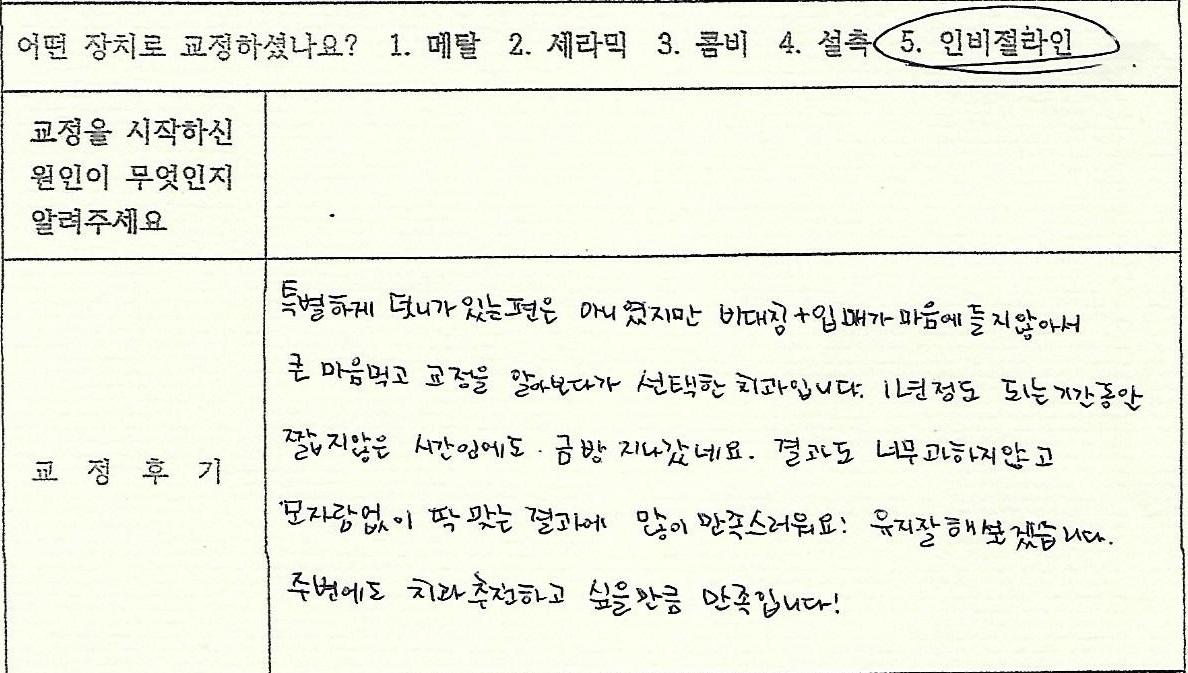 어떤 장치로 교정하셨나요? 1. 메탈 2. 세라믹 3. 콤비 4. 설측 5. 인비절라인
교정을 시작하신
원인이 무엇인지
알려주세요
교 정 후 기
특별하게 덧니가 있는편은 아니였지만 비대칭+입매가 마음에 들지않아서
큰 마음먹고 교정을 알아보다가 선택한 치과입니다. 1년정도 되는기간동안
짧지않은 시간임에도 금방 지나갔네요. 결과도 너무과하지않고
모자람없이 딱 맞는 결과에 많이 만족스러워요! 유지잘해보겠습니다.
주변에도 치과추천하고 싶을만큼 만족입니다!